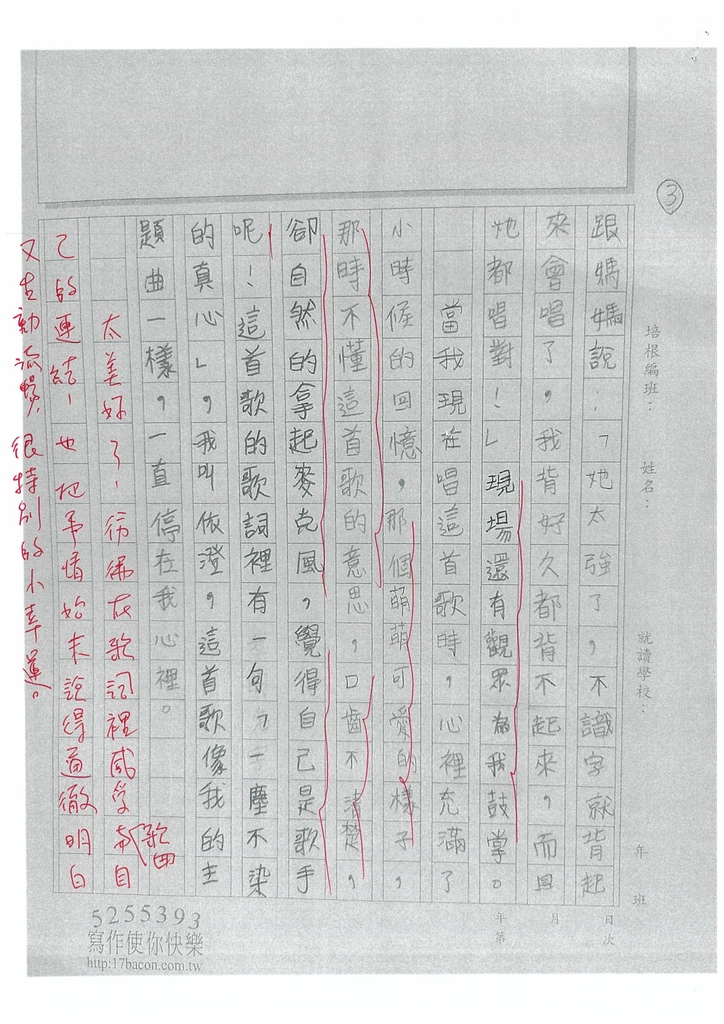 ③
培根編班：
姓名：
就讀學校
年
班
月
日
年第
次
跟媽媽說：「她太強了，不識字就背起
來會唱了，我背好久都背不起來，而且
她都唱對！」現場還有觀眾為我鼓掌。
當我現在唱這首歌時，心裡充滿了
小時候的回憶，那個萌萌可愛的樣子，
那時不懂這首歌的意思，口齒不清楚，
卻自然的拿起麥克風，覺得自己是歌手
呢！這首歌的歌詞裡有一句「一塵不染
的真心」，我叫依澄，這首歌像我的主
題曲一樣，一直停在我心裡。
太美好了！彷彿在歌詞裡感受歌曲與自
己的連結，也把事情始末說得透徹明白
又生動流暢，很特別的小幸運。
5255393
寫作使你快樂
http:17bacon.com.tw